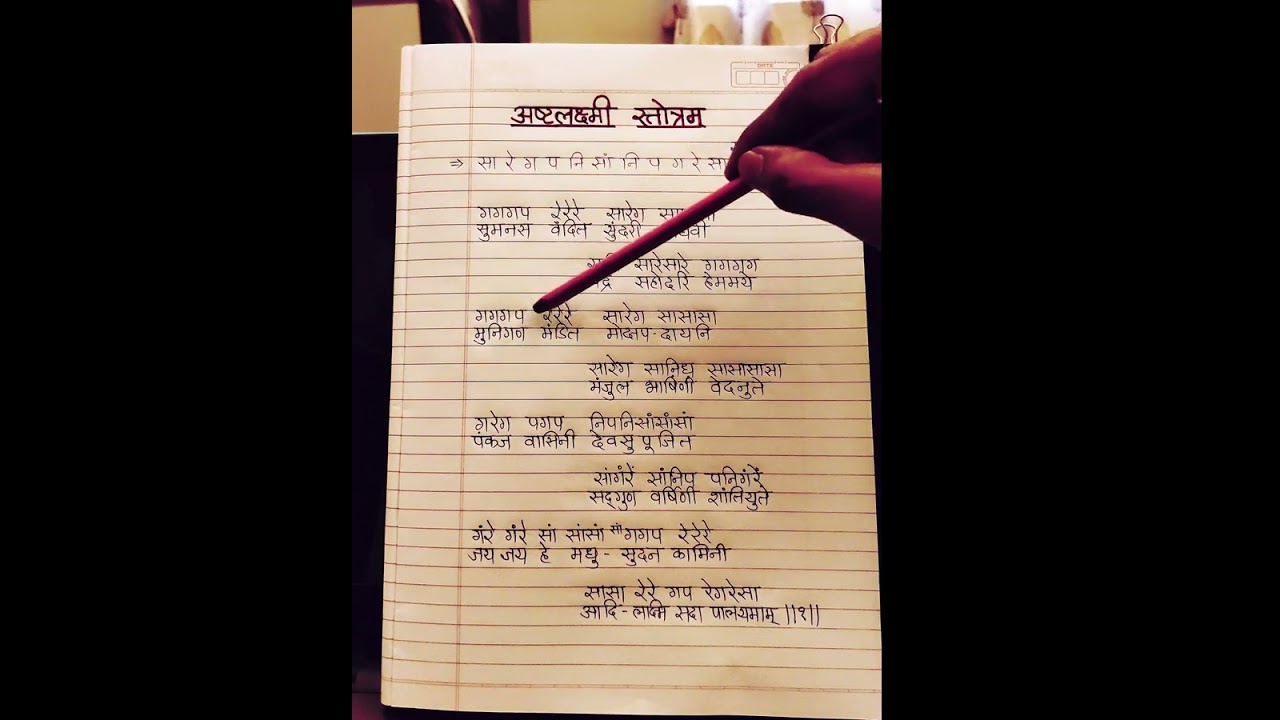 DATE
अष्टलक्ष्मी स्तोत्रम्
⇒ सा रे ग प नि सां नि प ग रे सा
गगगप रेरेरे सारेग
सुमनस वंदित सुंदरी
सारेसारे गगगग
सहोदरि हेममये
गगगप रेरेरे सारेग सासासा
मुनिगण मंडित मोक्षप-दायनि
सारेग सानिध़ सासासासा
मंजुल भाषिणी वेदनुते
ग़रेग पगप निपनिसांसांसां
पंकज वासिनी देवसुपूजित
सांगंरें सांनिप पनिगंरें
सद्गुण वर्षिणी शांतियुते
गंरे गंरे सां सांसां सां गगप रेरेरे
जय जय हे मधु - सुदन कामिनी
सासा रेरे गप रेगरेसा
आदि - लक्ष्मि सदा पालयमाम् ||१||